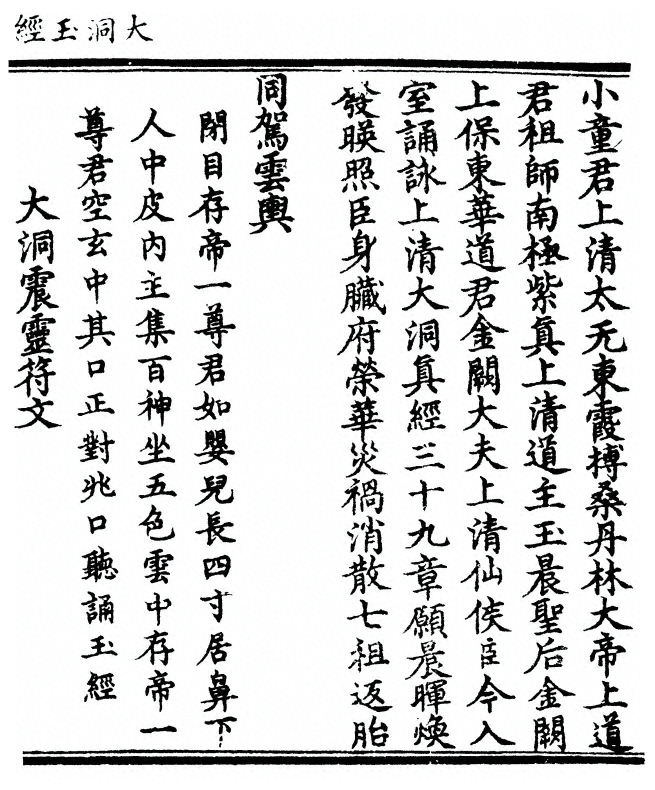 大洞玉經
小童君上清太无東霞搏桑丹林大帝上道
君祖師南極紫真上清道主玉晨聖后金闕
上保東華道君金闕大夫上清仙侯臣今入
室誦詠上清大洞真經三十九章願晨暉煥
發暎照臣身臟府榮華災禍消散七祖返胎
同駕雲輿
閉目存帝一尊君如嬰兒長四寸居鼻下
人中皮内主集百神坐五色雲中存帝一
尊君空玄中其口正對兆口聽誦玉經
大洞震靈符文